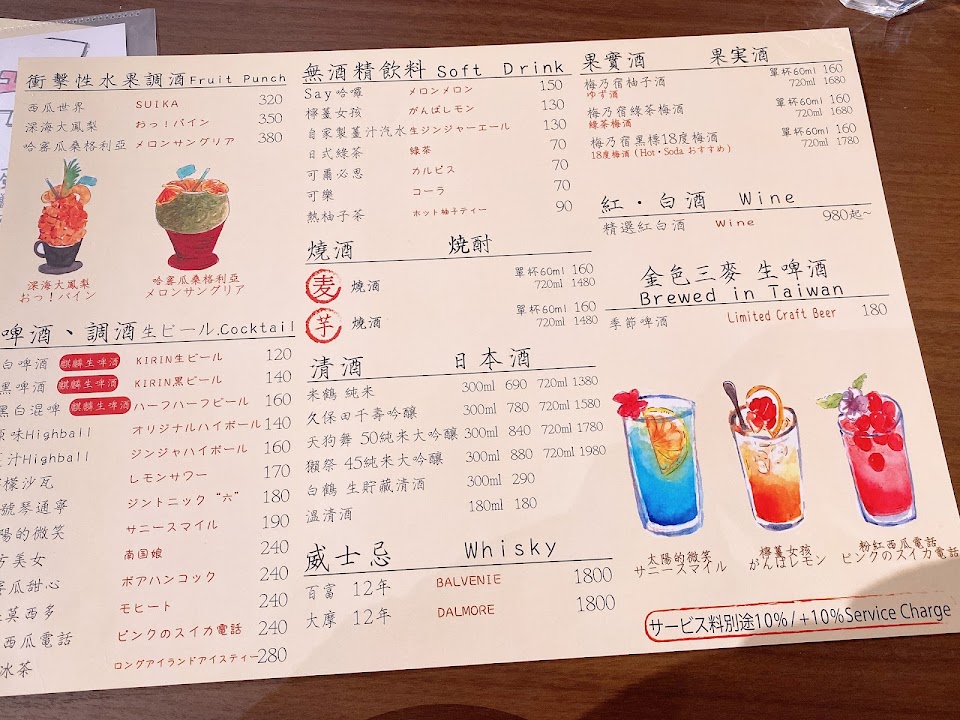 衝擊性水果調酒 Fruit Punch
西瓜世界 SUIKA 320
深海大鳳梨 おっ!パイン 350
哈蜜瓜桑格利亞 メロンサングリア 380
深海大鳳梨
おっ!パイン
哈蜜瓜桑格利亞
メロンサングリア
啤酒、調酒 生ビール.Cocktail
白啤酒 麒麟生啤酒 KIRIN生ビール 120
黑啤酒 麒麟生啤酒 KIRIN黒ビール 140
黑白混啤 麒麟生啤酒 ハーフハーフビール 160
味Highball オリジナルハイボール 140
汁Highball ジンジャハイボール 160
檬沙瓦 レモンサワー 170
號琴通寧 ジントニック “六” 180
陽的微笑 サニースマイル 190
方美女 南国娘 240
蜜瓜甜心 ボアハンコック 240
莫西多 モヒート 240
西瓜電話 ピンクのスイカ電話 240
冰茶 ロングアイランドアイスティー 280
無酒精飲料 Soft Drink
Say哈囉 メロンメロン 150
檸薑女孩 がんばレモン 130
自家製薑汁汽水 生ジンジャーエール 130
日式綠茶 緑茶 70
可爾必思 カルピス 70
可樂 コーラ 70
熱柚子茶 ホット柚子ティー 90
燒酒 焼酎
麦 燒酒 單杯60ml 160
720ml 1480
芋 燒酒 單杯60ml 160
720ml 1480
清酒 日本酒
米鶴 純米 300ml 690 720ml 1380
久保田千壽吟釀 300ml 780 720ml 1580
天狗舞 50純米大吟釀 300ml 840 720ml 1780
獺祭 45純米大吟釀 300ml 880 720ml 1980
白鶴 生貯藏清酒 300ml 290
溫清酒 180ml 180
威士忌 Whisky
百富 12年 BALVENIE 1800
大摩 12年 DALMORE 1800
果實酒 果実酒
梅乃宿柚子酒 單杯60ml 160
ゆず酒 720ml 1680
梅乃宿綠茶梅酒 單杯60ml 160
緑茶梅酒 720ml 1680
梅乃宿黑標18度梅酒 單杯60ml 160
18度梅酒(Hot・Soda おすすめ) 720ml 1780
紅・白酒 Wine
精選紅白酒 Wine 980起~
金色三麥 生啤酒
Brewed in Taiwan
季節啤酒 Limited Craft Beer 180
太陽的微笑
サニースマイル
檸薑女孩
がんばレモン
粉紅西瓜電話
ピンクのスイカ電話
サービス料別途10%/+10%Service Charge